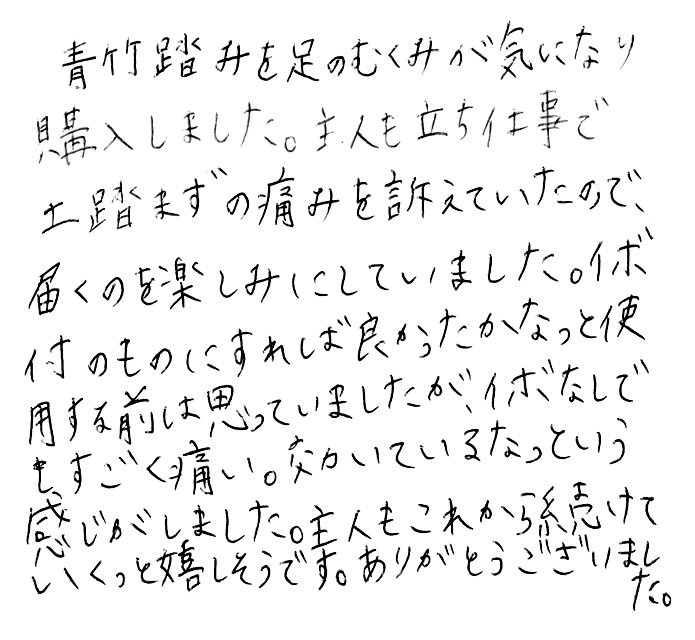 青竹踏みを足のむくみが気になり
購入しました。主人も立ち仕事で
土踏まずの痛みを訴えていたので、
届くのを楽しみにしていました。イボ
付のものにすれば良かったかなっと使
用する前は思っていましたが、イボなしで
もすごく痛い。効いているなっという
感じがしました。主人もこれから続けて
いくっと嬉しそうです。ありがとうございまし
た。